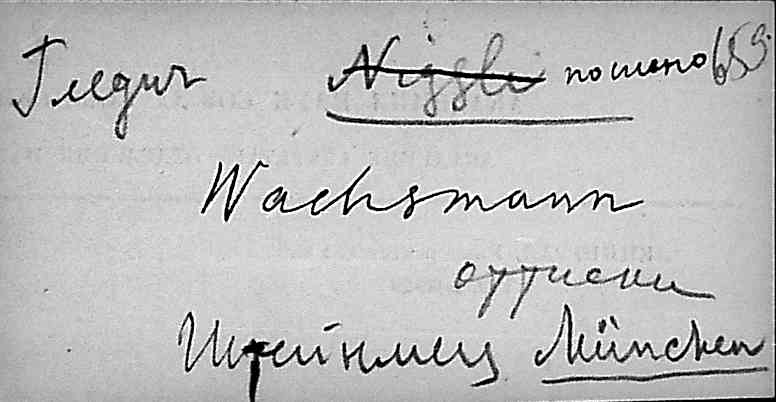 Гледич Niggli послано 65 г.
Wachsmann
оттиски
Штейнмец München